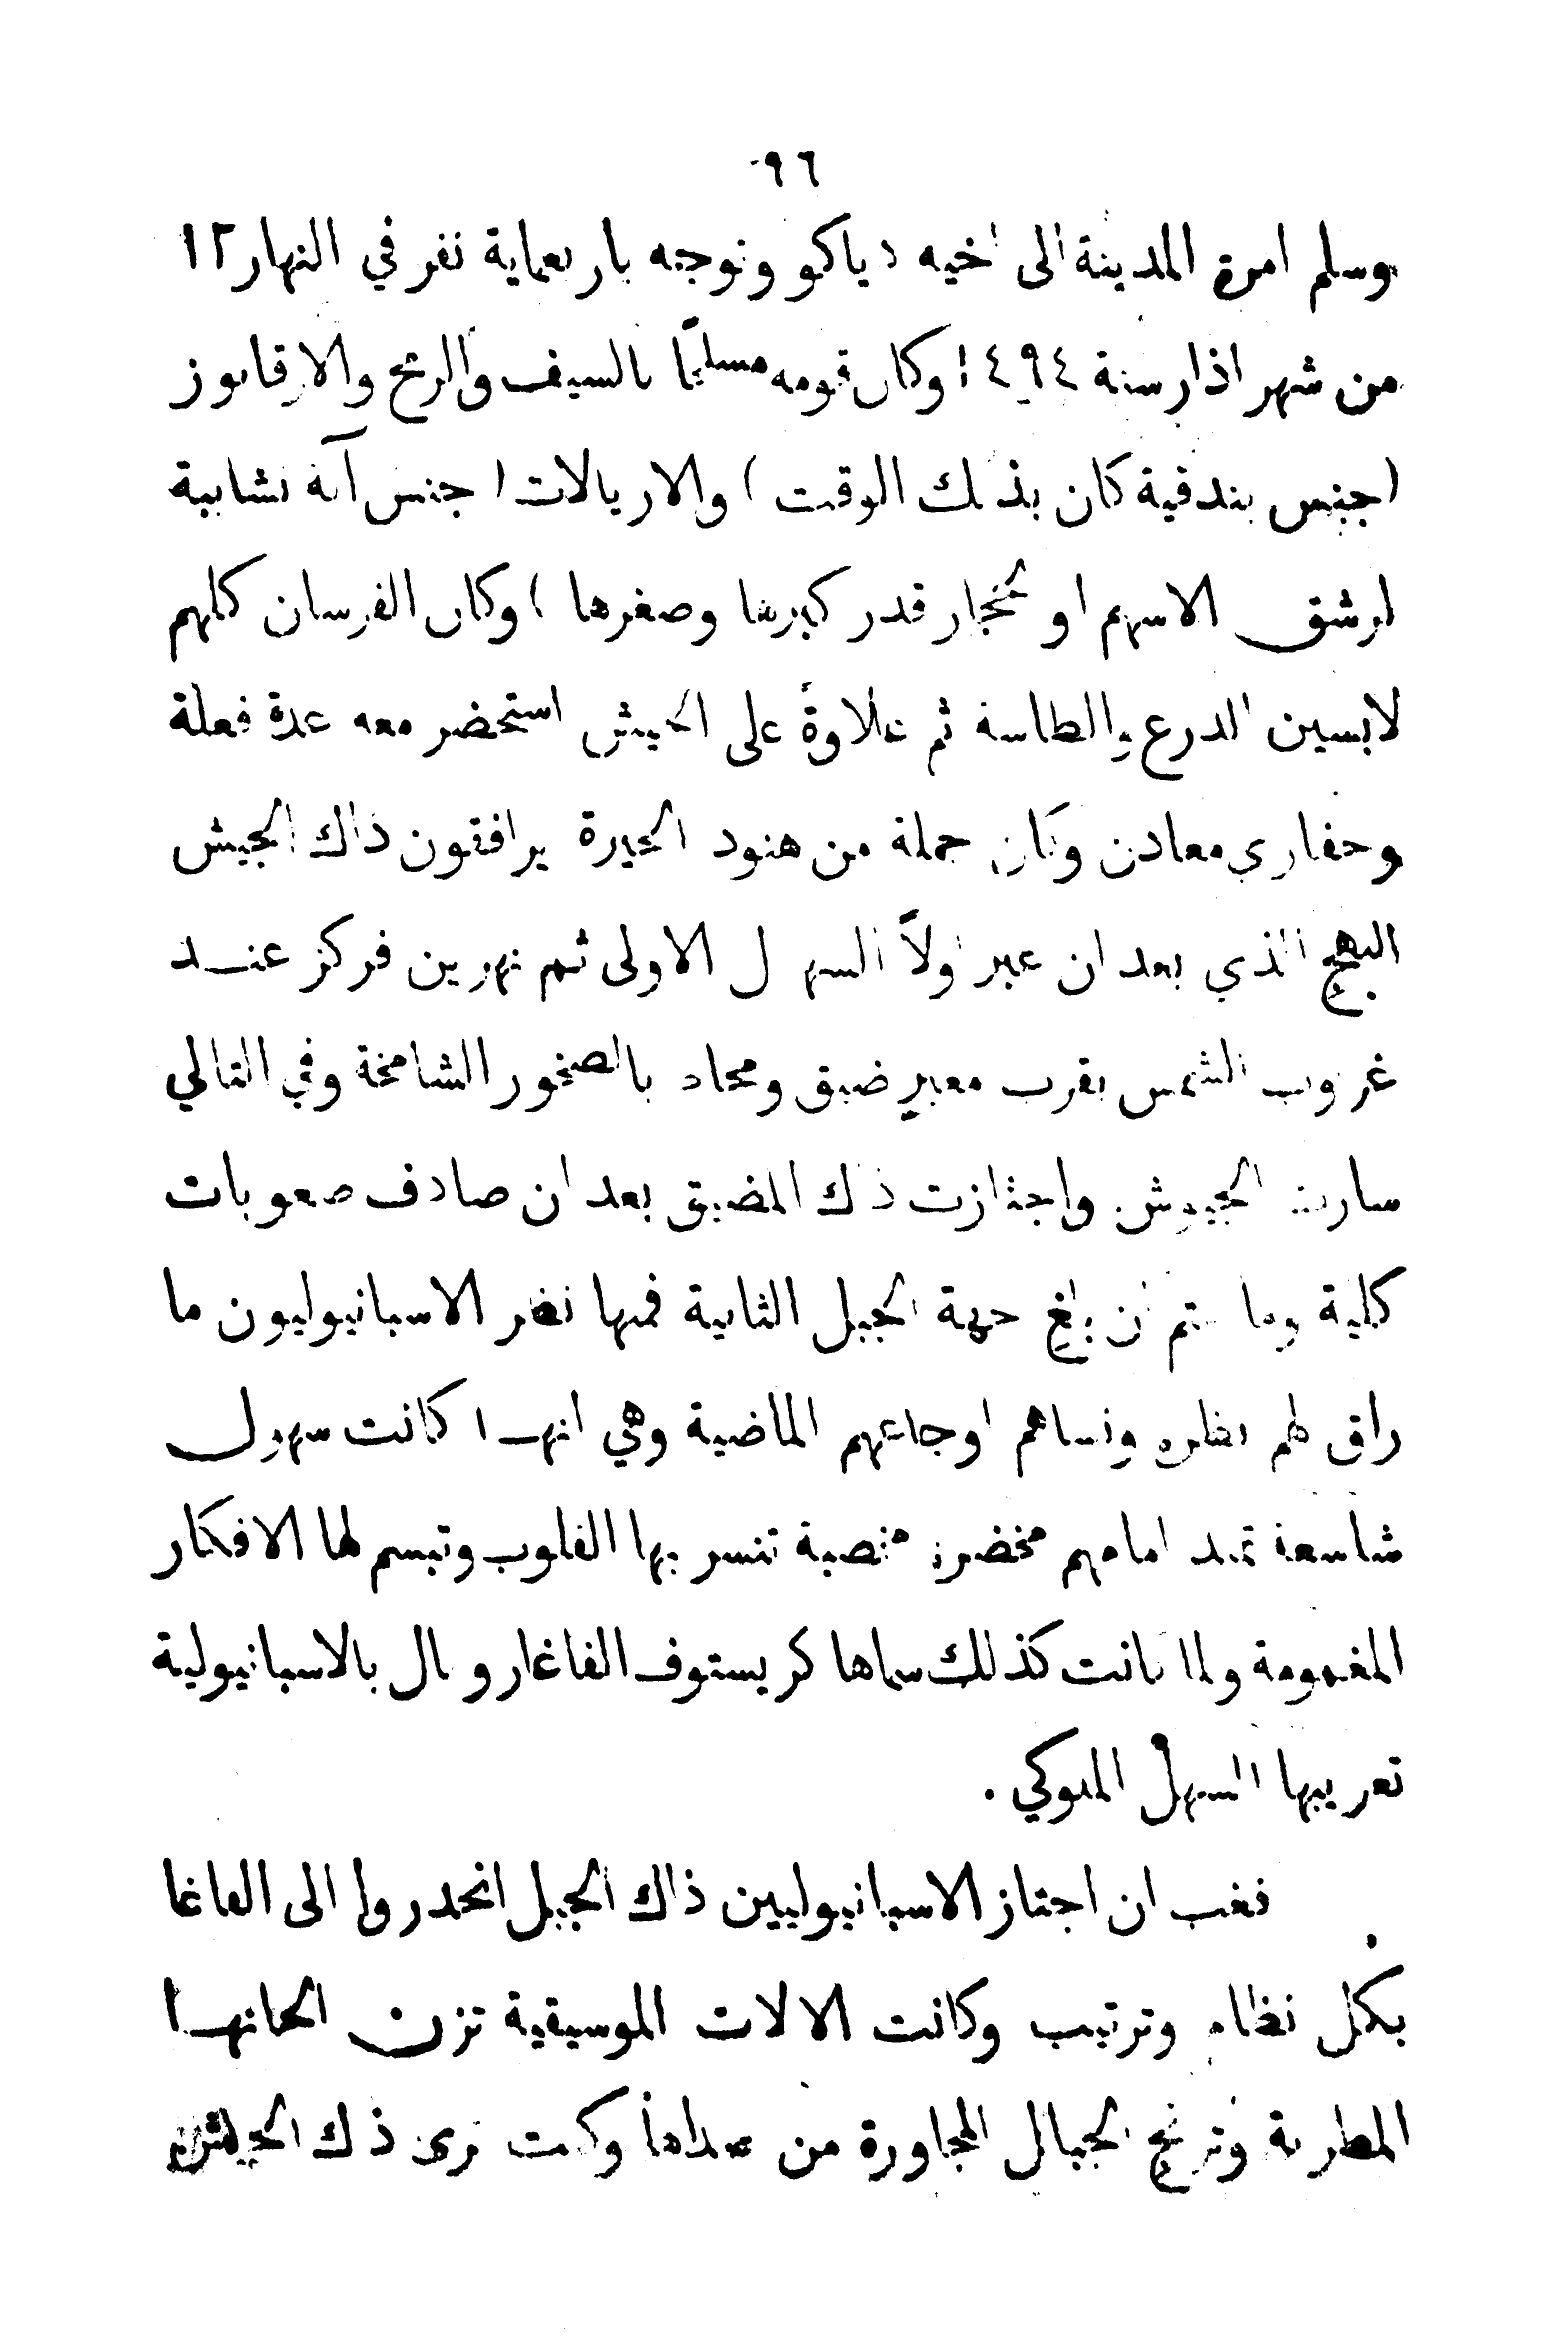 ٩٦
وسلم امرة المدينة الى اخيه دياكو وتوجه باربعماية نفر في النهار ١٢
من شهر اذار سنة ١٤٩٤ وكان قومه مسلحًا بالسيف والرمح والارقابوز
(جنس بندقية كان بذلك الوقت) والاربالات (جنس آلة نشابية
لرشق الاسهم او حجار قدر كبرها وصغرها) وكان الفرسان كلهم
لابسين الدرع والطاسة ثم علاوةً على الجيش استحضر معه عدة فعلة
وحفاري معادن وكان جملة من هنود الجيرة يرافقون ذاك الجيش
البهج الذي بعد ان عبر اولاً السهل الاولى ثم نهرين فركز عند
غروب الشمس بقرب معبر ضيق ومحاد بالصخور الشامخة وفي التالي
سارت الجيوش واجتازت ذلك المضيق بعد ان صادف صعوبات
كلية وما تم ان بلغ جهة الجبل الثانية فمنها نظر الاسبانيوليون ما
راق لهم نظره ونساهم اوجاعهم الماضية وهي انها كانت سهول
شاسعة تمد امامهم مخضرة مخصبة تنسر بها القلوب وتبسم لها الافكار
المغمومة ولما كانت كذلك سماها كريستوف الفاغا روىال بالاسبانيولية
تعريبها السهل الملوكي .
فغب ان اجتاز الاسبانيوليين ذاك الجبل انحدروا الى الفاغا
بكل نظام وترتيب وكانت الالات الموسيقية تزن الحانها
المطربة وترتج الجبال المجاورة من صداها وكنت ترى ذلك الجيش